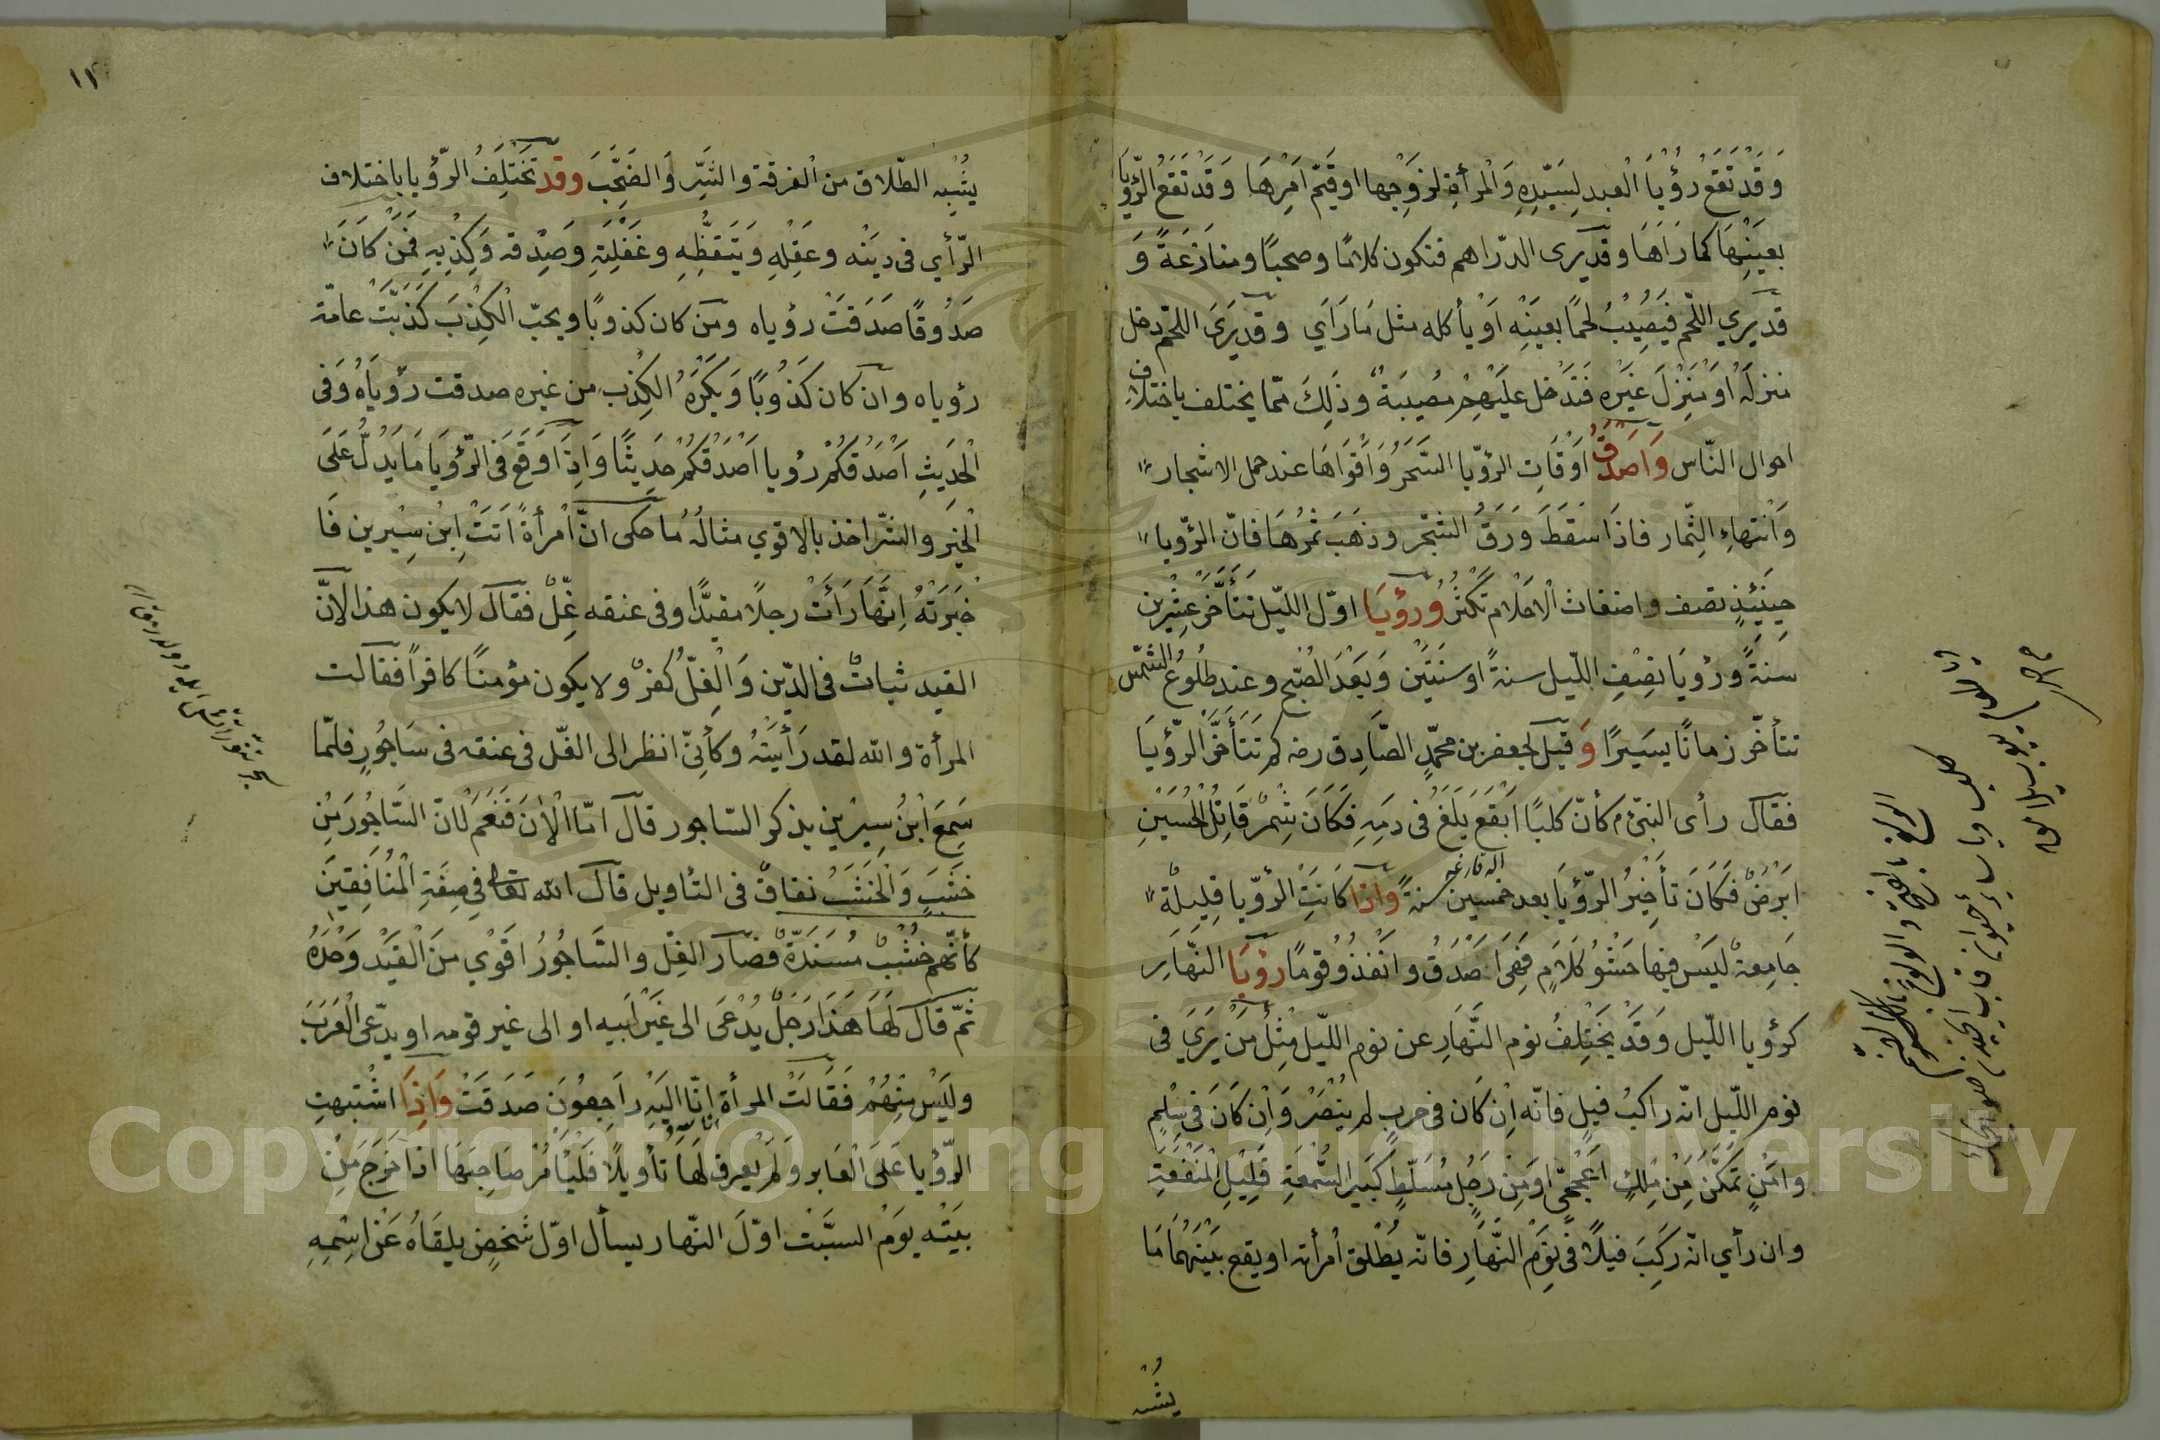 وَقَدْ تَقَعُ رُؤْيَا الْعبد لِسَيِّدِهِ وَالْمرأةِ لِزَوْجِها او قَيِّم اَمْرِهَا وَقَدْ تَقَعُ الرُّؤْيَا
بِعَيْنِهَا كما رَاَهَا وقَدْ يَرى الدّراهم فتكون كلامًا وصخبًا ومنازَعَةً وَ
قَدْ يَري اللّحم فَيُصِيْبُ لحمًا بعينِه اَوْ يأكله مثل مَا رَاَي وقَدْ يَرَىَ اللحْم دخل
منزلَهُ اَوْ مَنْزِلَ غَيْرِه فَتَدْخل عليْهِمْ مُصِيبَةٌ وذَلِكَ ممّا يختلف باختلاف
احوال النّاس وَاَصْدَقُ اَوْقَاتِ الرؤيَا السَّحَرُ وَاَقْوَاهَا عند حمل الاشجار
وَانْتهاءِ الثِّمار فاذَا سَقَطَ وَرَقُ الشَّجَر وذَهَبَ ثَمَرُهَا فانّ الرّؤيا
حِيْنَئِذٍ تضعف واضغاث الْاحْلَام تكْثُرُ ورؤيَا اوّل اللّيل تَتَأَخَّرُ عِشْرِين
سنةً ورؤيَا نِصْفِ اللّيل سنةً او سَنَتَيْن وَبَعْدَ الصُّبْح وعند طُلُوعُ الشَّمْس
تتأخّر زمانًا يسَيرًا وَقيل لجعفر بن محمّدٍ الصَّادِق رضه كم تَتَأَخَّرُ الرّؤيَا
فقال رأى النبىّ م كأنّ كلبًا اَبْقَعَ يَلَغُ فى دمِهِ فَكَانَ شِمْرُ قَاتِلُ الْحُسَيْنِ
اَبْرَصُ فَكَانَ تأخِيْرُ الرّؤيَا بعد خمسين سنةً واذا كَانَتِ الرّؤيا قليلةً
جَامِعةً ليْسَ فيها حَشْوُ كَلامٍ فَهِىَ اَصْدَقُ وانْفَذُ وُقوعًا رؤيَا النّهارِ
كرؤيا اللّيل وَقَدْ يَخْتلِفُ نوم النَّهَارِ عن نوم اللّيل مِثْلُ مَنْ يَرَيَ فى
نوم اللّيل انّه راكبُ فيلٍ فانّه اِنْ كَان فى حربٍ لم يُنْصَرْ وَاِنْ كَانَ فى سِلْمٍ
وامْنٍ تَمَكَّنَ مِنْ مَلِكٍ اَعْجَمىٍّ اوَمِنْ رَجُلٍ مُسَلّطٍ كَبير السُّمْعَةِ قَلِيْلِ الْمنْفَعَةِ
وان رأي انّه رَكِبَ فيلًا فى نِوْم النَّهَارِ فانّه يُطْلق اْمرأته او يقع بيْنَهُمَا مَا
يُشْبِه
١١
يُشْبِه الطّلاق من الْفرقة والشَّرِّ وَالصَّخَبَ وقد تَخْتَلِفُ الرّؤيا باختلاف
الرّأي فى ديْنه وعَقِلْهِ وَتَيَقّظُهِ وغَفْلتِهِ وَصِدْقه وَكِذْبِهِ فمَنْ كَانَ
صَدُوقًا صَدَقَتْ رؤياه ومن كان كذوبًا ويحبّ الْكِذْبَ كَذَبَتْ عامّة
رؤياه وان كان كَذُوبًا وَيَكْرَهُ الكِذْب من غيره صدقت رؤيَاهُ وَفى
الْحَدِيْثِ اَصْدَقُكُمْ رؤيا اَصْدَقُكُمْ حَدِيْثًا وَاِذَا وَقَعَ فى الرّؤيَا مَا يَدُلُّ عَلَى
الْخيْرِ والشّر اخذ بالاقوي مثالُهُ مُا حكى انّ اْمرأةً اَتَتْ اِبْن سِيْرين فَا
خْبَرَتْهُ اِنَّهَا رَأَتْ رجلًا مقيَّدًا وفى عنقه غِلٌّ فقال لا يكون هذا لاَنَّ
القيد ثباتٌ فى الدّين وَالْغِلّ كُفرٌ ولا يكون مؤمنًا كافرًا فقالت
المرأة والله لقد رَأَيْتُهُ وكَأَنّى انظر الى الغّل فى عنقه فى سَاجُورٍ فلمّا
سَمِعَ اْبنُ سِيْرِيْن بذكر السّاجور قال امّا الْاٰنَ فَنَعَمْ لانّ السَّاجُورَ مِنْ
خَشَبٍ وَالْخَشَبُ نفاقٌ فى التأويل قال الله تعالى فى صِفَةِ الْمُنَافِقِينَ
كأنّهم خُشُبٌ مُسَنَدَةٌ فصَار الغِلّ والسَّاجُورُ اقوْي مِنَ الْقَيْد وَحْدَهُ
ثمّ قال لَهَا هَذَا رَجُلٌ يُدْعَى الى غيْر اَبيه او الى غير قومه او يدّعى الْعَرَبَ
وليْسَ مِنْهُمْ فَقَالَتْ المرأة اِنّا اليْهِ رَاجِعُوْنَ صَدَقَتْ وَاِذَا اشْتبهتِ
الرّؤيا عَلَى الْعَابر ولمْ يعرف لَهَا تأويلًا فَلْيَأمُرْ صَاحِبَهَا اذا خَرَجَ مِنْ
بيتْه يوَمْ السبَّت اوّلَ النّهار يسأل اوّل شَخصٍ يلقَاهُ عَنْ اسْمِهِ